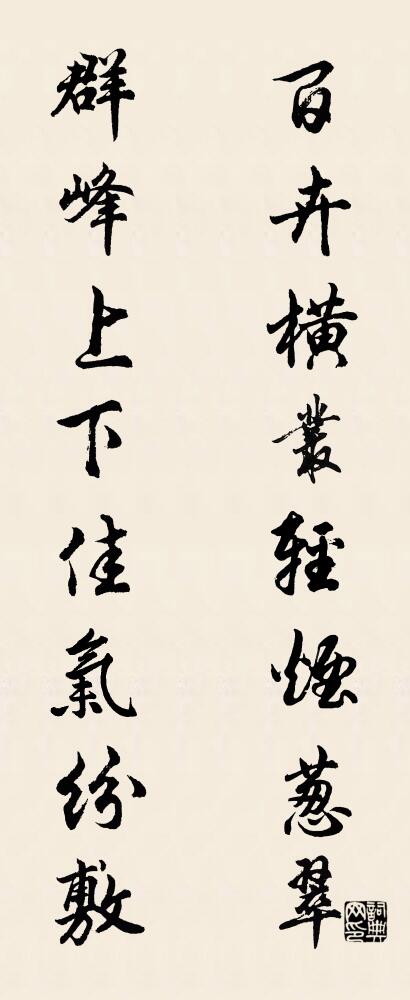 百卉橫叢輕煙葱翠
群峰上下佳氣紛敷
詞典網印